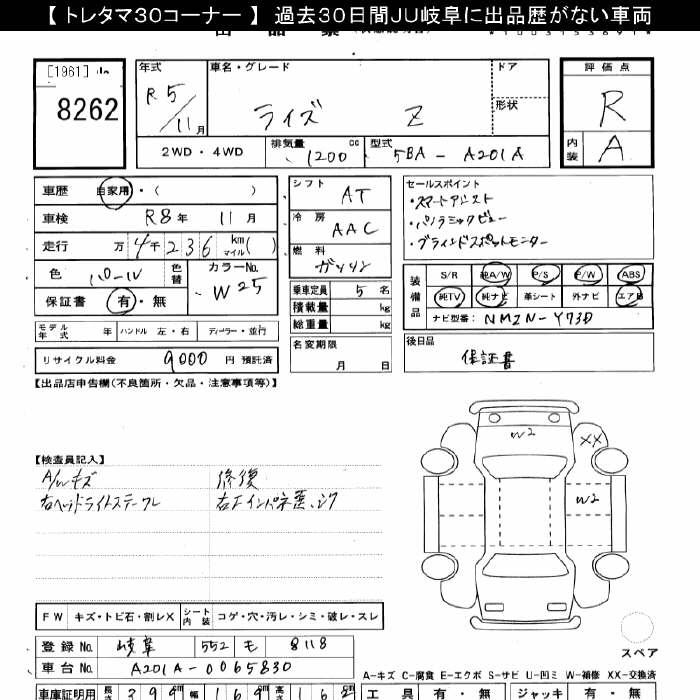 【 トレタマ30コーナー 】 過去30日間JU岐阜に出品歴がない車両
[1961]
8262
年式 車名・グレード ドア
R5/11月 ライズ Z 形状
2WD・4WD 排気量 1200 cc 型式 5BA - A201A
評価点
R
内装 A
車歴 自家用・( )
車検 R8年 11月
走行 万 4千236 km マイル( )
色 パール 色替 カラーNo. W25
保証書 有・無
モデル年式 年 ハンドル 左・右 ディーラー・並行
リサイクル料金 9000 円 預託済
シフト AT
冷房 AAC
燃料 ガソリン
乗車定員 5名
積載量 kg
総重量 kg
名変期限 月 日
セールスポイント
・スマートアシスト
・パノラミックビュー
・ブラインドスポットモニター
装備品 S/R 純A/W P/S P/W ABS
純TV 純ナビ 革シート 外ナビ エアB
ナビ型番: NMZN-Y73D
後日品
保証書
【出品店申告欄(不良箇所・欠品・注意事項等)】
【検査員記入】
A/wキズ 修復
右ヘッドライトステーワレ
W2 XX
W2
スペア
FW キズ・トビ石・割レX シート内装 コゲ・穴・汚レ・シミ・破レ・スレ
登録No. 岐阜 552 モ 8118
車台No. A201A-0065830
A-キズ C-腐食 E-エクボ S-サビ U-凹ミ W-補修 XX-交換済
車庫証明用 長さ 399 幅 169 高さ 162
工具 有・無 ジャッキ 有・無